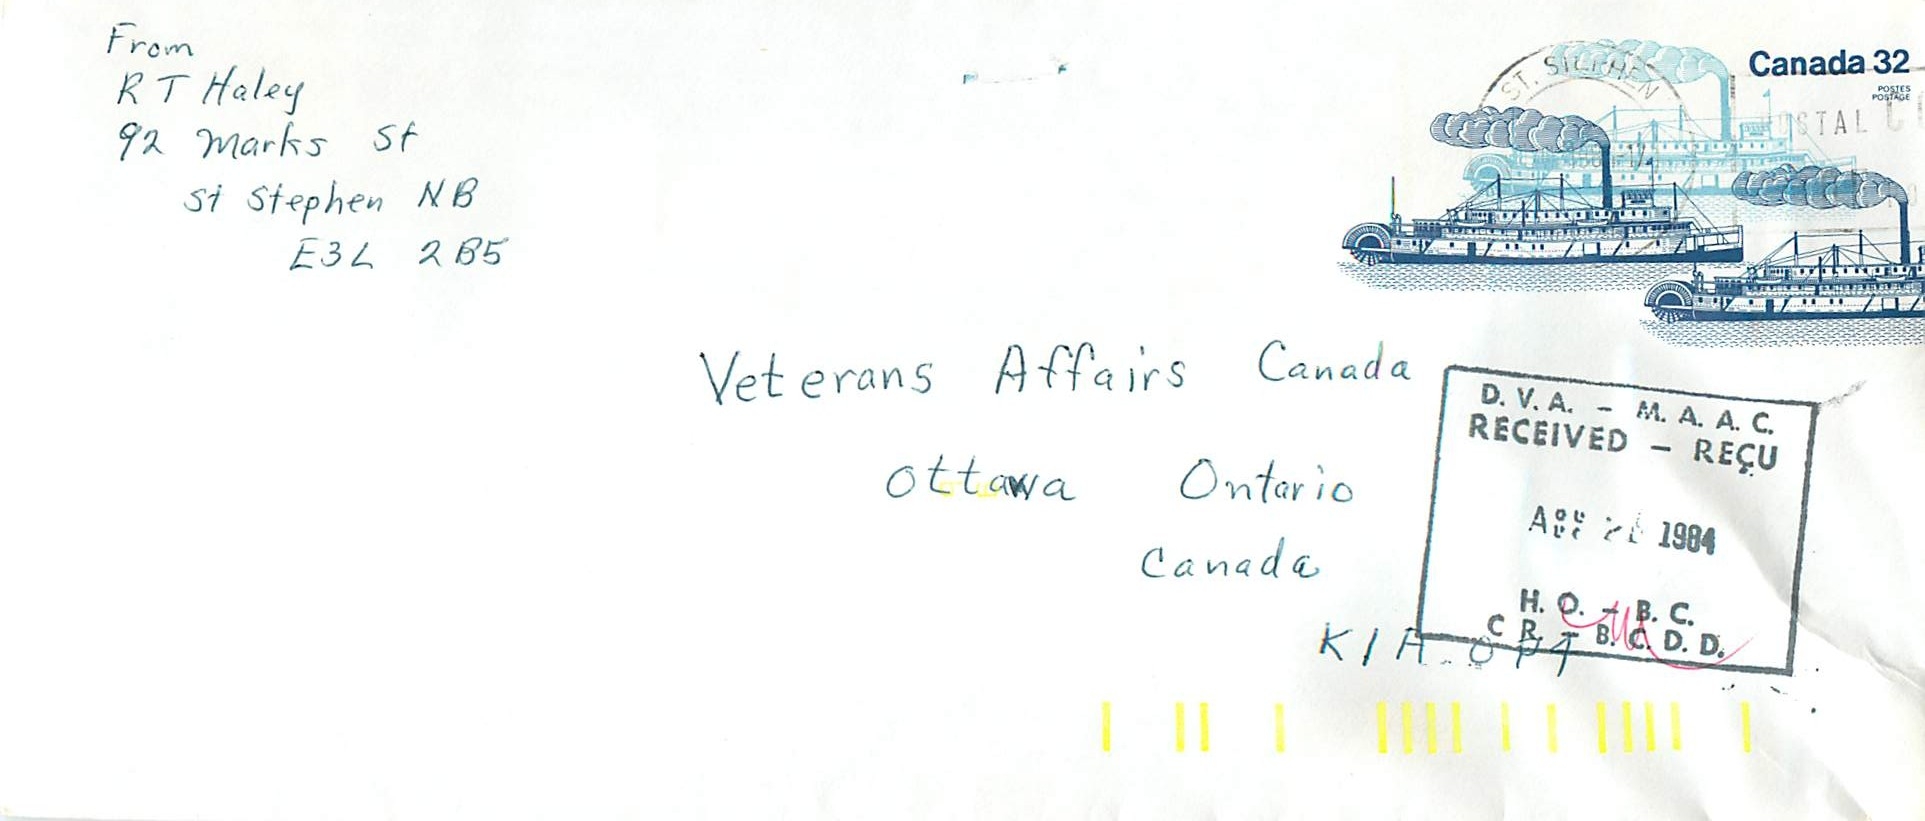 From
R T Haley
92 Marks St
St Stephen NB
E3L 2B5
Canada 32
POSTES
POSTAGE
ST. STEPHEN
POSTAL
Veterans Affairs Canada
Ottawa Ontario
Canada
K1A 0P4
D. V. A. - M. A. A. C.
RECEIVED - REÇU
1984
H. O. - B. C.
C R. - B. C. D. D.